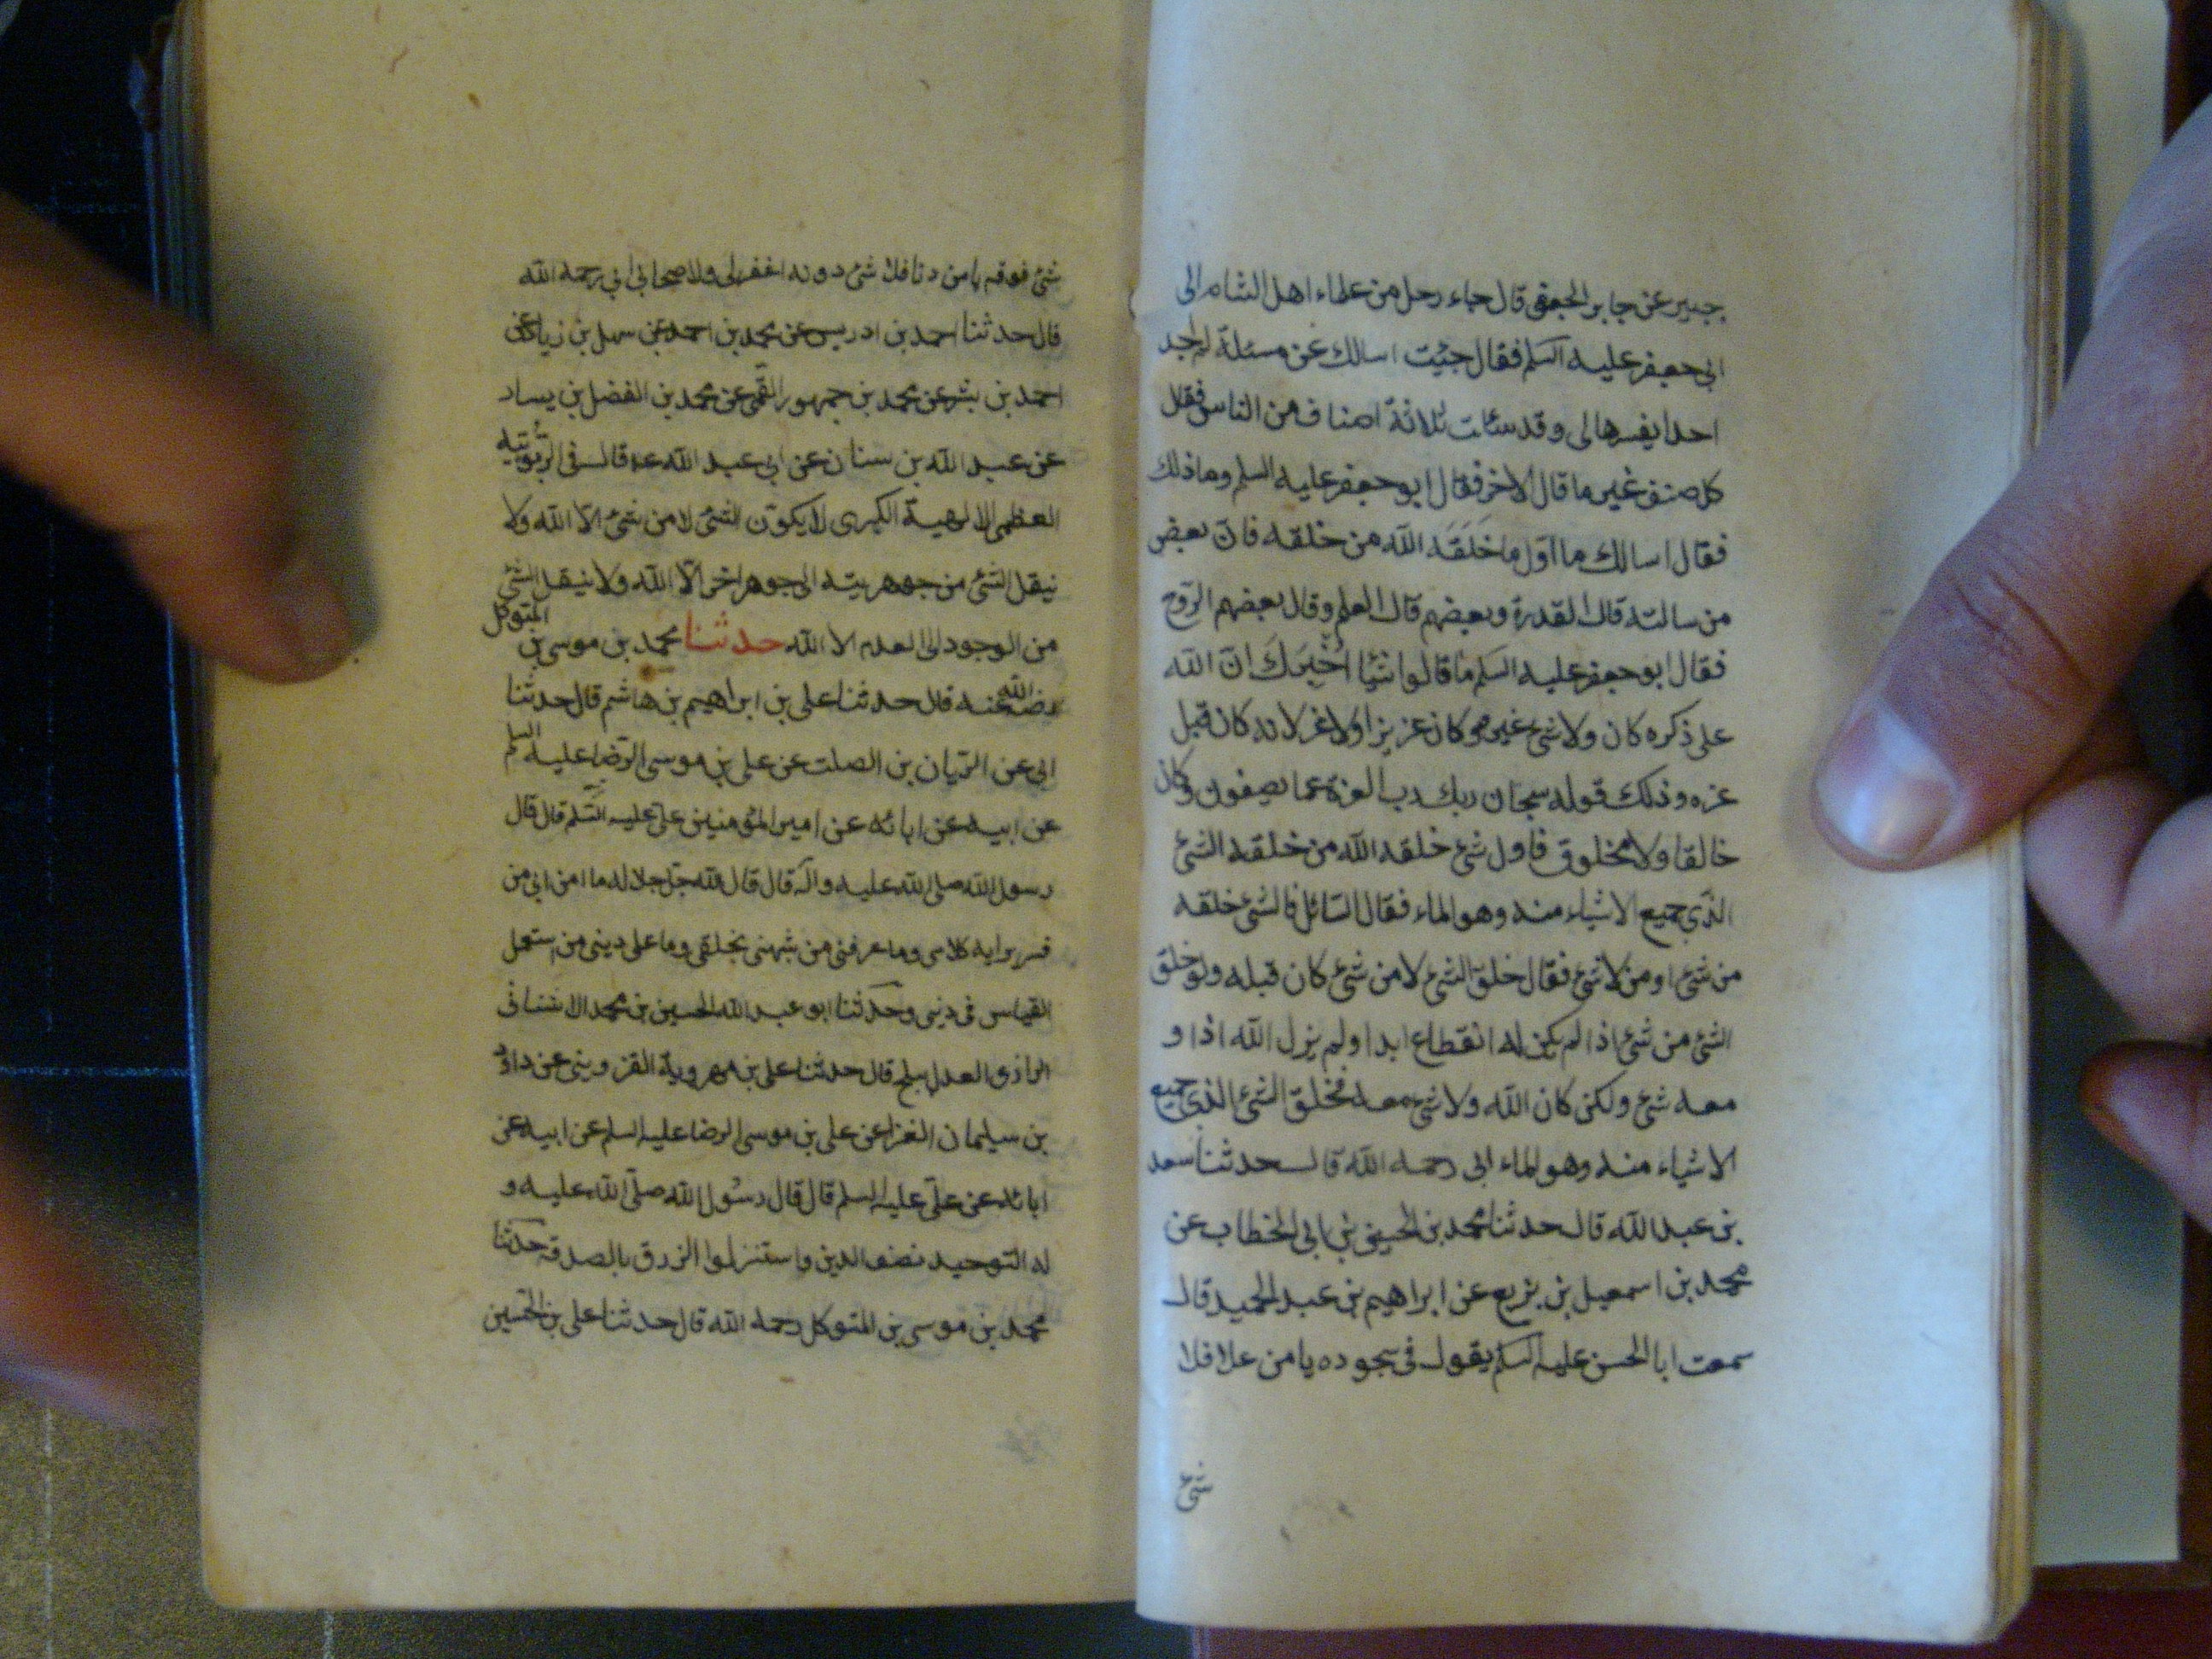 جبير عن جابر الجعفى قال جاء رجل من علماء اهل الشام الى
ابى جعفر عليه السلم فقال جئت اسالك عن مسئلة لم اجد
احدا يفسرها لى وقد سئلت ثلاثة اصناف من الناس فقال
كل صنف غير ما قال الاخر فقال ابو جعفر عليه السلم وما ذلك
فقال اسالك ما اول ما خلقه الله من خلقه فان بعض
من سالته قال القدرة وبعضهم قال العلم وقال بعضهم الروح
فقال ابو جعفر عليه السلم ما قالوا شيئا اخبرك ان الله
على ذكره كان ولا شئ غيره وكان عزيزا ولا عز لانه كان قبل
عزه وذلك قوله سبحان ربك رب العزة عما يصفون وكان
خالقا ولا مخلوق فاول شئ خلقه الله من خلقه الشئ
الذى جميع الاشياء منه وهو الماء فقال السائل فالشئ خلقه
من شئ او من لا شئ فقال خلق الشئ لا من شئ كان قبله ولو خلق
الشئ من شئ اذا لم يكن له انقطاع ابدا ولم يزل الله اذا و
معه شئ ولكن كان الله ولا شئ معه فخلق الشئ الذى جميع
الاشياء منه وهو الماء ابى رحمه الله قال حدثنا سعد
بن عبد الله قال حدثنا محمد بن الحسين بن ابى الخطاب عن
محمد بن اسمعيل بن بزيع عن ابراهيم بن عبد الحميد قال
سمعت ابا الحسن عليه السلم يقول فى سجوده يا من علا فلا
شئ
شئ فوقه يا من دنا فلا شئ دونه اغفر لى ولاصحابى ابى رحمه الله
قال حدثنا احمد بن ادريس عن محمد بن احمد عن سهل بن زياد عن
احمد بن بشر عن محمد بن جمهور القمى عن محمد بن الفضل بن يسار
عن عبد الله بن سنان عن ابى عبد الله عه قال فى الربوبية
العظمى الالهية الكبرى لا يكون الشئ لا من شئ الا الله ولا
ينقل الشئ من جوهريته الى جوهر اخر الا الله ولا ينقل الشئ
من الوجود الى العدم الا الله حدثنا محمد بن موسى بن المتوكل
رضى الله عنه قال حدثنا على بن ابراهيم بن هاشم قال حدثنا
ابى عن الريان بن الصلت عن على بن موسى الرضا عليه السلم
عن ابيه عن ابائه عن امير المؤمنين على عليه السلم قال قال
رسول الله صلى الله عليه واله قال قال الله جل جلاله ما امن ابى من
فسر برايه كلامى وما عرفنى من شبهنى بخلقى وما على دينى من استعمل
القياس فى دينى وحدثنا ابو عبد الله الحسين بن محمد الاشنانى
الرازى العدل ببلخ قال حدثنا على بن مهروية القزوينى عن داود
بن سليمان الغزا عن على بن موسى الرضا عليه السلم عن ابيه عن
ابائه عن على عليه السلم قال قال رسول الله صلى الله عليه و
له التوحيد نصف الدين واستنزلوا الرزق بالصدقة حدثنا
محمد بن موسى بن المتوكل رحمه الله قال حدثنا على بن الحسين